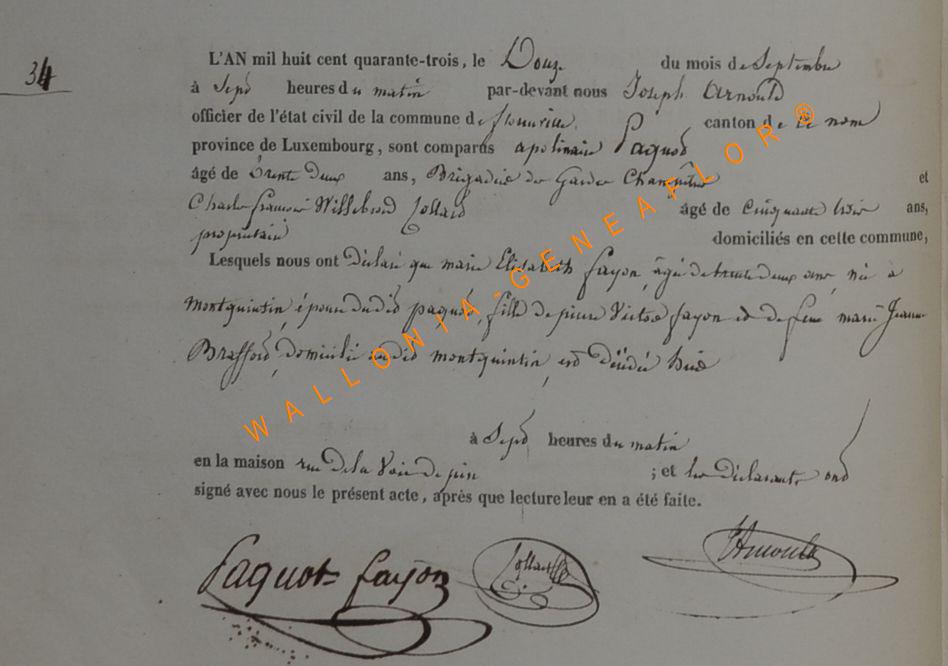 34
L'AN mil huit cent quarante-trois, le Douze du mois de Septembre
à Sept heures du matin par-devant nous Joseph Arnould
officier de l'état civil de la commune de florenville, canton de ce nom
province de Luxembourg, sont comparus apolinaire Paquot
âgé de trente deux ans, Brigadier de Gardes Champêtres et
Charles françois Willebrord Collard âgé de Cinquante trois ans,
propriétaire domiciliés en cette commune,
Lesquels nous ont Déclaré que marie Elisabeth fayon, âgée de trente deux ans, née à
montquintin, épouse du dit paquot, fille de pierre Victor fayon et de feue marie Jeanne
Brafford, domicilié au dit montquintin, est décédée hier
à Sept heures du matin
en la maison rue de la Voie de pin ; et les déclarants ont
signé avec nous le présent acte, après que lecture leur en a été faite.
Paquot fayon Collard Arnould
WALLONIA-GENEAFLOR®